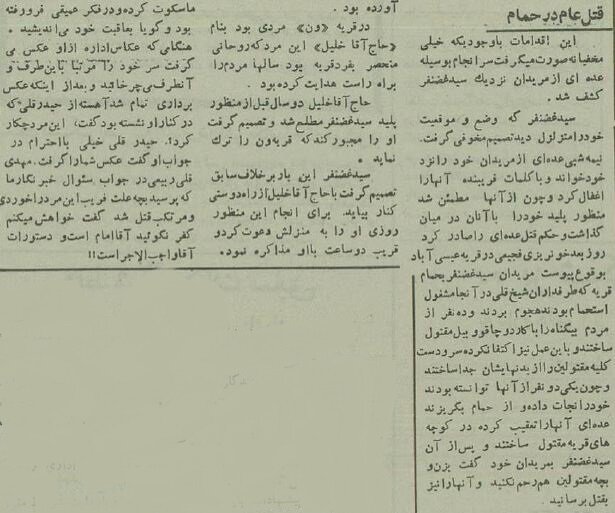 قتل عام در حمام
این اقدامات باوجودیکه خیلی
مخفیانه صورت میگرفت سرانجام بوسیله
عده ای از مریدان نزدیك سیدغضنفر
کشف شد.
سیدغضنفر که وضع و موقعیت
خود را متزلزل دید تصمیم مخوفی گرفت.
نیمه شبی عده‌ای از مریدان خود را نزد
خود خواند و با کلمات فریبنده آنها را
اغفال کرد و چون از آنها مطمئن شد
منظور پلید خود را با آنان در میان
گذاشت و حکم قتل عده‌ای را صادر کرد
روز بعد خونریزی فجیعی در قریه عیسی آباد
بوقوع پیوست مریدان سیدغضنفر بحمام
قریه که طرفداران شیخ قلی در آنجا مشغول
استحمام بودند هجوم بردند و ده نفر از
مردم بیگناه را با کارد و چاقو و بیل مقتول
ساختند و با این عمل نیز اکتفا نکرده سر و دست
کلیه مقتولین را از بدنهایشان جدا ساختند
و چون یکی دو نفر از آنها توانسته بودند
خود را نجات داده و از حمام بگریزند
عده ای آنها را تعقیب کرده در کوچه
های قریه مقتول ساختند و پس از آن
سیدغضنفر بمریدان خود گفت بزن و
بچه مقتولین هم رحم نکنید و آنها را نیز
بقتل برسانید.
آورده بود.
در قریه «ون» مردی بود بنام
«حاج آقا خلیل» این مرد که روحانی
منحصر بفرد قریه بود سالها مردم را
براه راست هدایت کرده بود.
حاج آقا خلیل دو سال قبل از منظور
پلید سیدغضنفر مطلع شد و تصمیم گرفت
او را مجبور کند که قریه ون را ترك
نماید.
سیدغضنفر این بار برخلاف سابق
تصمیم گرفت با حاج آقا خلیل از راه دوستی
کنار بیاید. برای انجام این منظور
روزی او را به منزلش دعوت کرد و
قریب دو ساعت با او مذاکره نمود.
ما سکوت کرده و در فکر عمیقی فرو رفته
بود و گویا بعاقبت خود می اندیشید.
هنگامی که عکاس اداره از او عکس می
گرفت سر خود را مرتبا باین طرف و
آنطرف می چرخانید و بعد از اینکه عکس
برداری تمام شد آهسته از حیدر قلی که
در کنار او نشسته بود گفت، این مرد چکار
کرد؟. حیدر قلی خیلی با احترام در
جواب او گفت عکس شما را گرفت. مهدی
قلی ربیعی در جواب سئوال خبرنگار ما
که پرسید بچه علت فریب این مرد را خوردی
و مرتکب قتل شد گفت خواهش میکنم
کفر نگوئید آقا امام است و دستورات
آقا واجب الاجراست!!